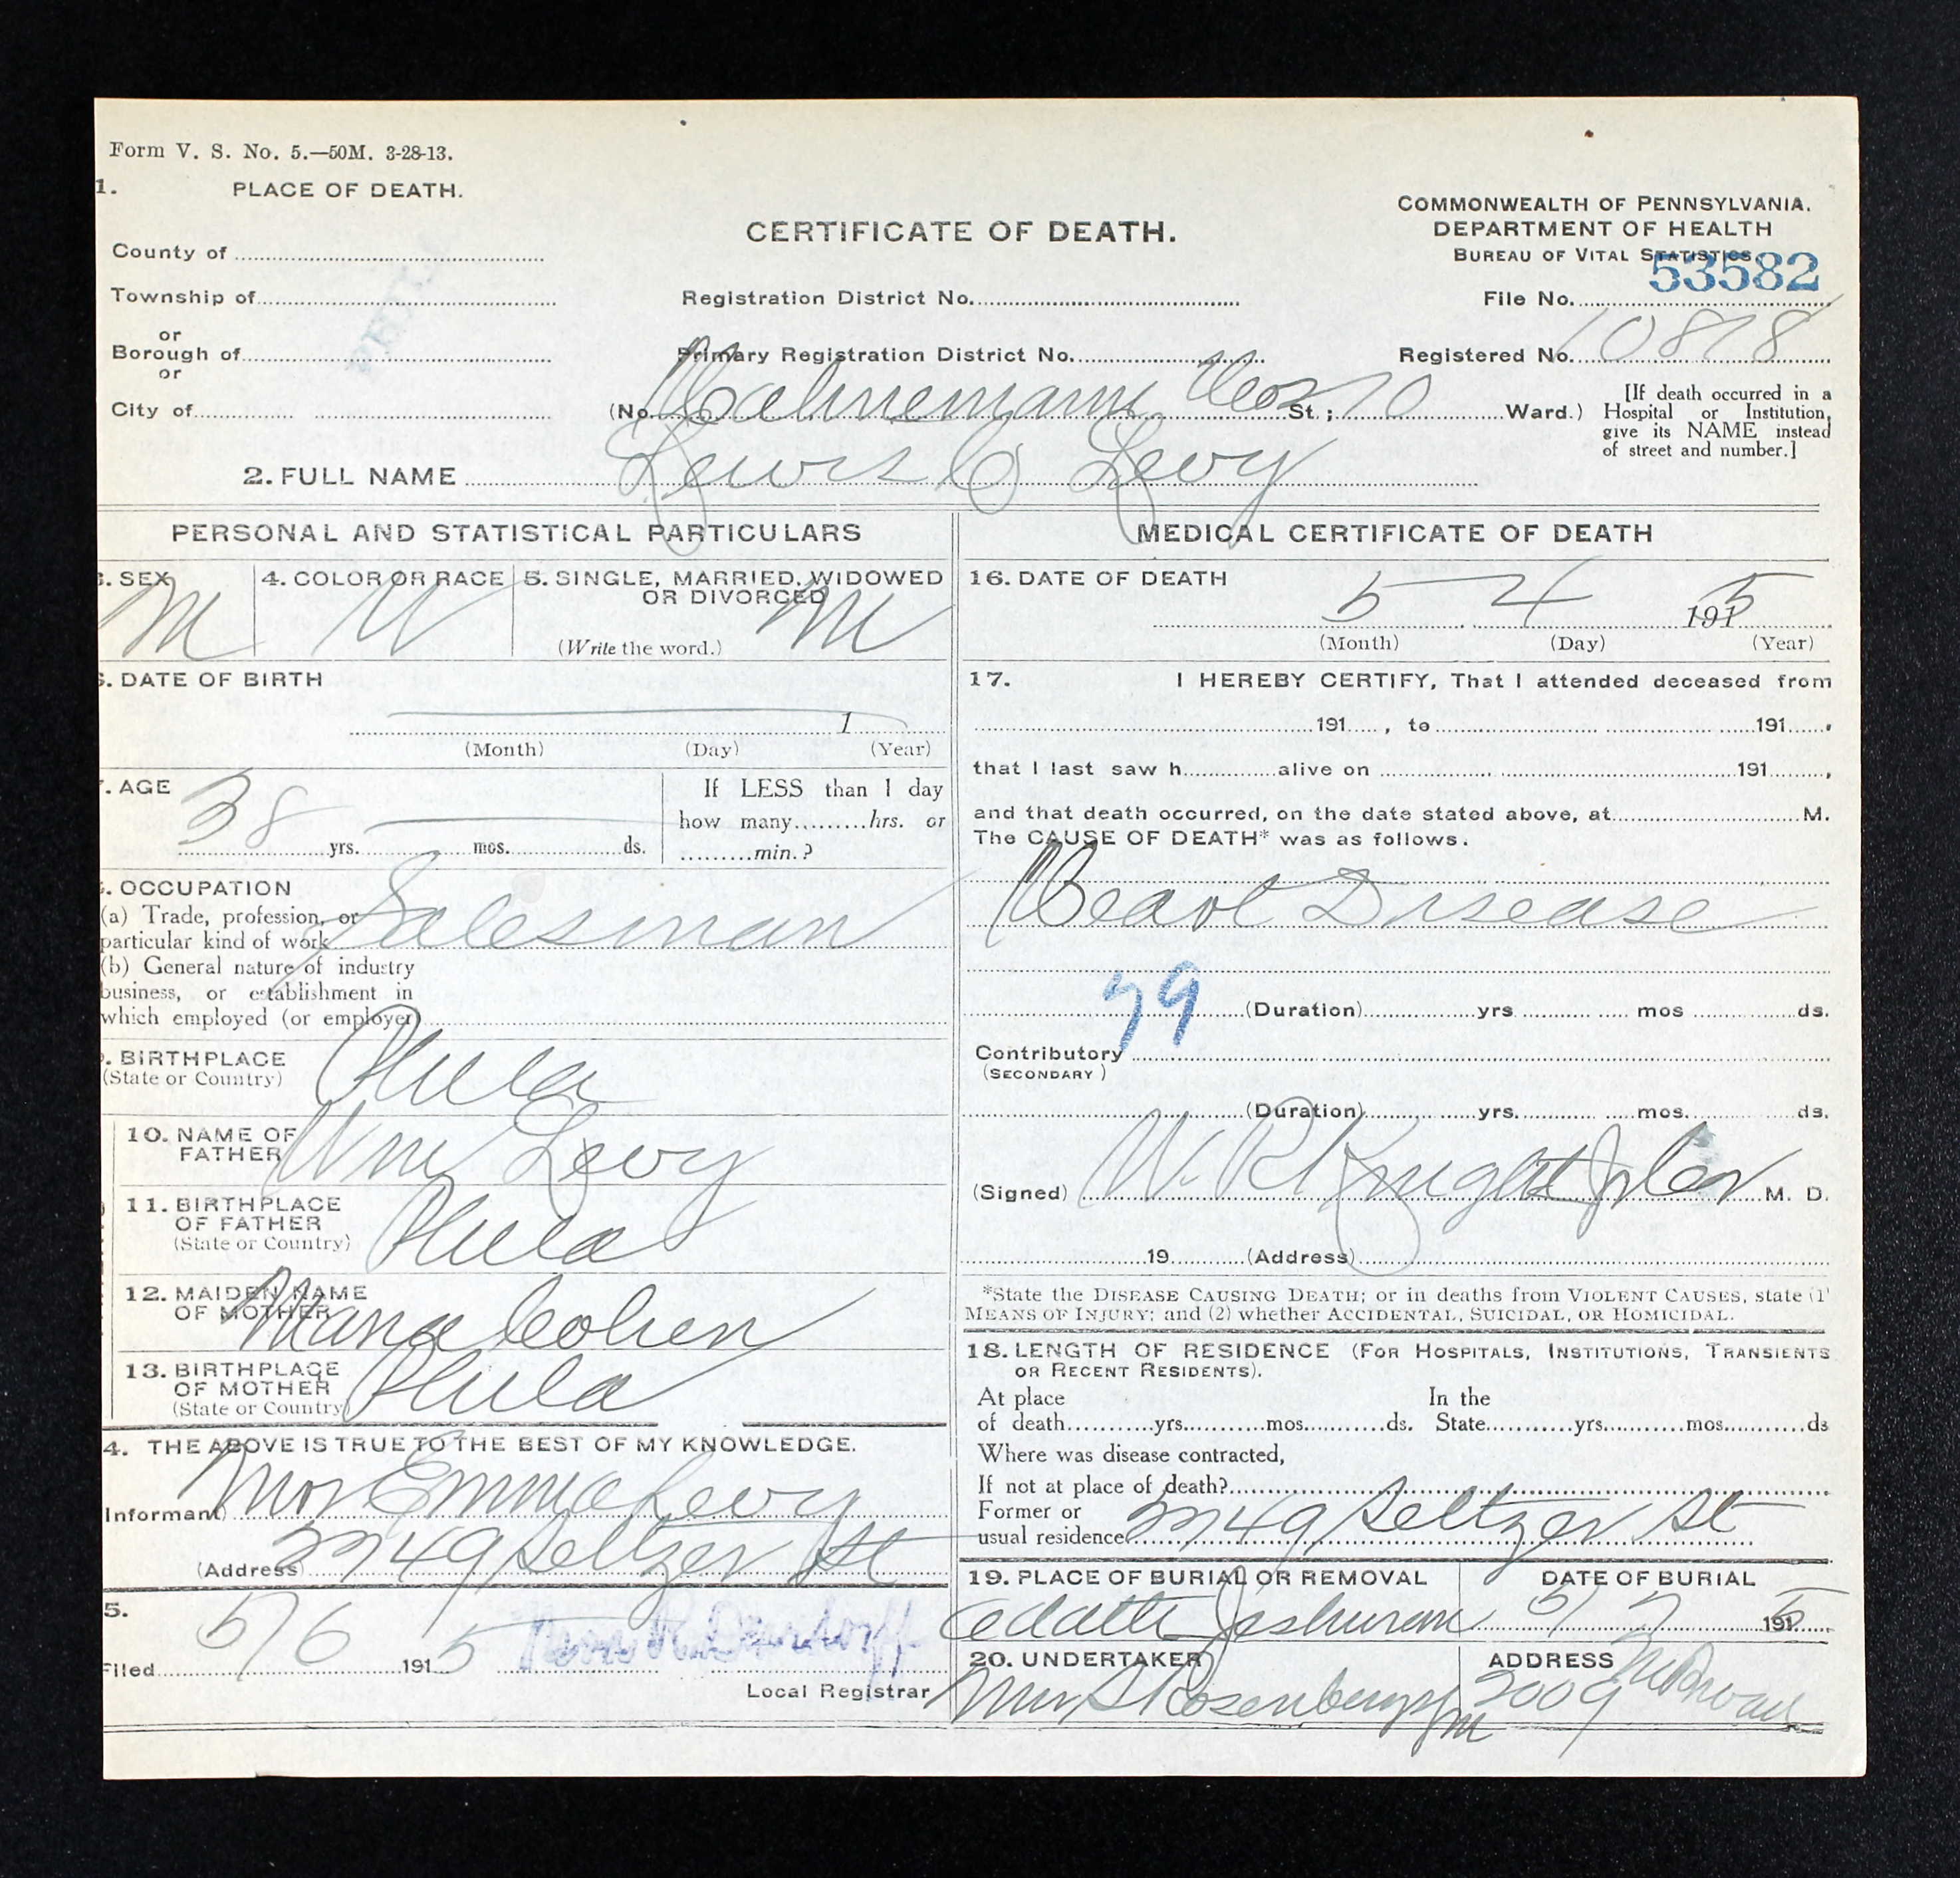 Form V. S. No. 5.—50M. 3-28-13.
1. PLACE OF DEATH.
COMMONWEALTH OF PENNSYLVANIA.
DEPARTMENT OF HEALTH
BUREAU OF VITAL STATISTICS.
CERTIFICATE OF DEATH.
County of
Township of
or
Borough of
or
City of
Registration District No.
Primary Registration District No.
File No. 53582
Registered No. 10878
(No. Hahnemann Hosp St.; Ward.)
[If death occurred in a
Hospital or Institution,
give its NAME instead
of street and number.]
2. FULL NAME Lewis C Levy
PERSONAL AND STATISTICAL PARTICULARS
3. SEX
M
4. COLOR OR RACE
W
5. SINGLE, MARRIED, WIDOWED
OR DIVORCED
(Write the word.)
M
. DATE OF BIRTH
1
(Month) (Day) (Year)
. AGE
38 yrs. mos. ds.
If LESS than 1 day
how many hrs. or
min.?
. OCCUPATION
(a) Trade, profession, or
particular kind of work Salesman
(b) General nature of industry
business, or establishment in
which employed (or employer)
. BIRTHPLACE
(State or Country)
Phila
10. NAME OF
FATHER
Wm Levy
11. BIRTHPLACE
OF FATHER
(State or Country)
Phila
12. MAIDEN NAME
OF MOTHER
Cohen
13. BIRTHPLACE
OF MOTHER
(State or Country)
Phila
4. THE ABOVE IS TRUE TO THE BEST OF MY KNOWLEDGE.
Informant Mrs Emma Levy
(Address) 2749 Seltzer St
5.
Filed 5/6 1915
Local Registrar
MEDICAL CERTIFICATE OF DEATH
16. DATE OF DEATH
5 4 1915
(Month) (Day) (Year)
17. I HEREBY CERTIFY, That I attended deceased from
191 , to 191 ,
that I last saw h alive on 191 ,
and that death occurred, on the date stated above, at M.
The CAUSE OF DEATH* was as follows.
Heart Disease
79
(Duration) yrs mos ds.
Contributory
(SECONDARY)
(Duration) yrs. mos. ds.
(Signed) W. R. Knight Jr M. D.
19 (Address)
*State the DISEASE CAUSING DEATH; or in deaths from VIOLENT CAUSES, state (1)
MEANS OF INJURY; and (2) whether ACCIDENTAL, SUICIDAL, OR HOMICIDAL.
18. LENGTH OF RESIDENCE (FOR HOSPITALS, INSTITUTIONS, TRANSIENTS
OR RECENT RESIDENTS).
At place In the
of death yrs. mos. ds. State yrs. mos. ds
Where was disease contracted,
If not at place of death?
Former or
usual residence 2749 Seltzer St
19. PLACE OF BURIAL OR REMOVAL
Adath Jeshurun
DATE OF BURIAL
5/7 1915
20. UNDERTAKER
Mrs S Rosenberg
ADDRESS
2009 N Broad